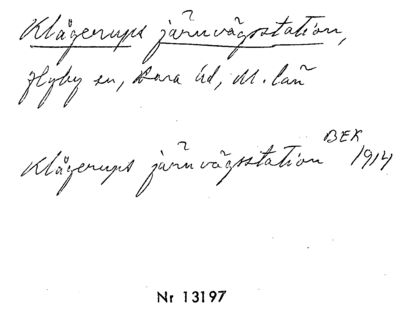 Klågerups järnvägsstation,
Hyby sn, Bara hd, M. län
Klågerups järnvägsstation BEK 1914
Nr 13197